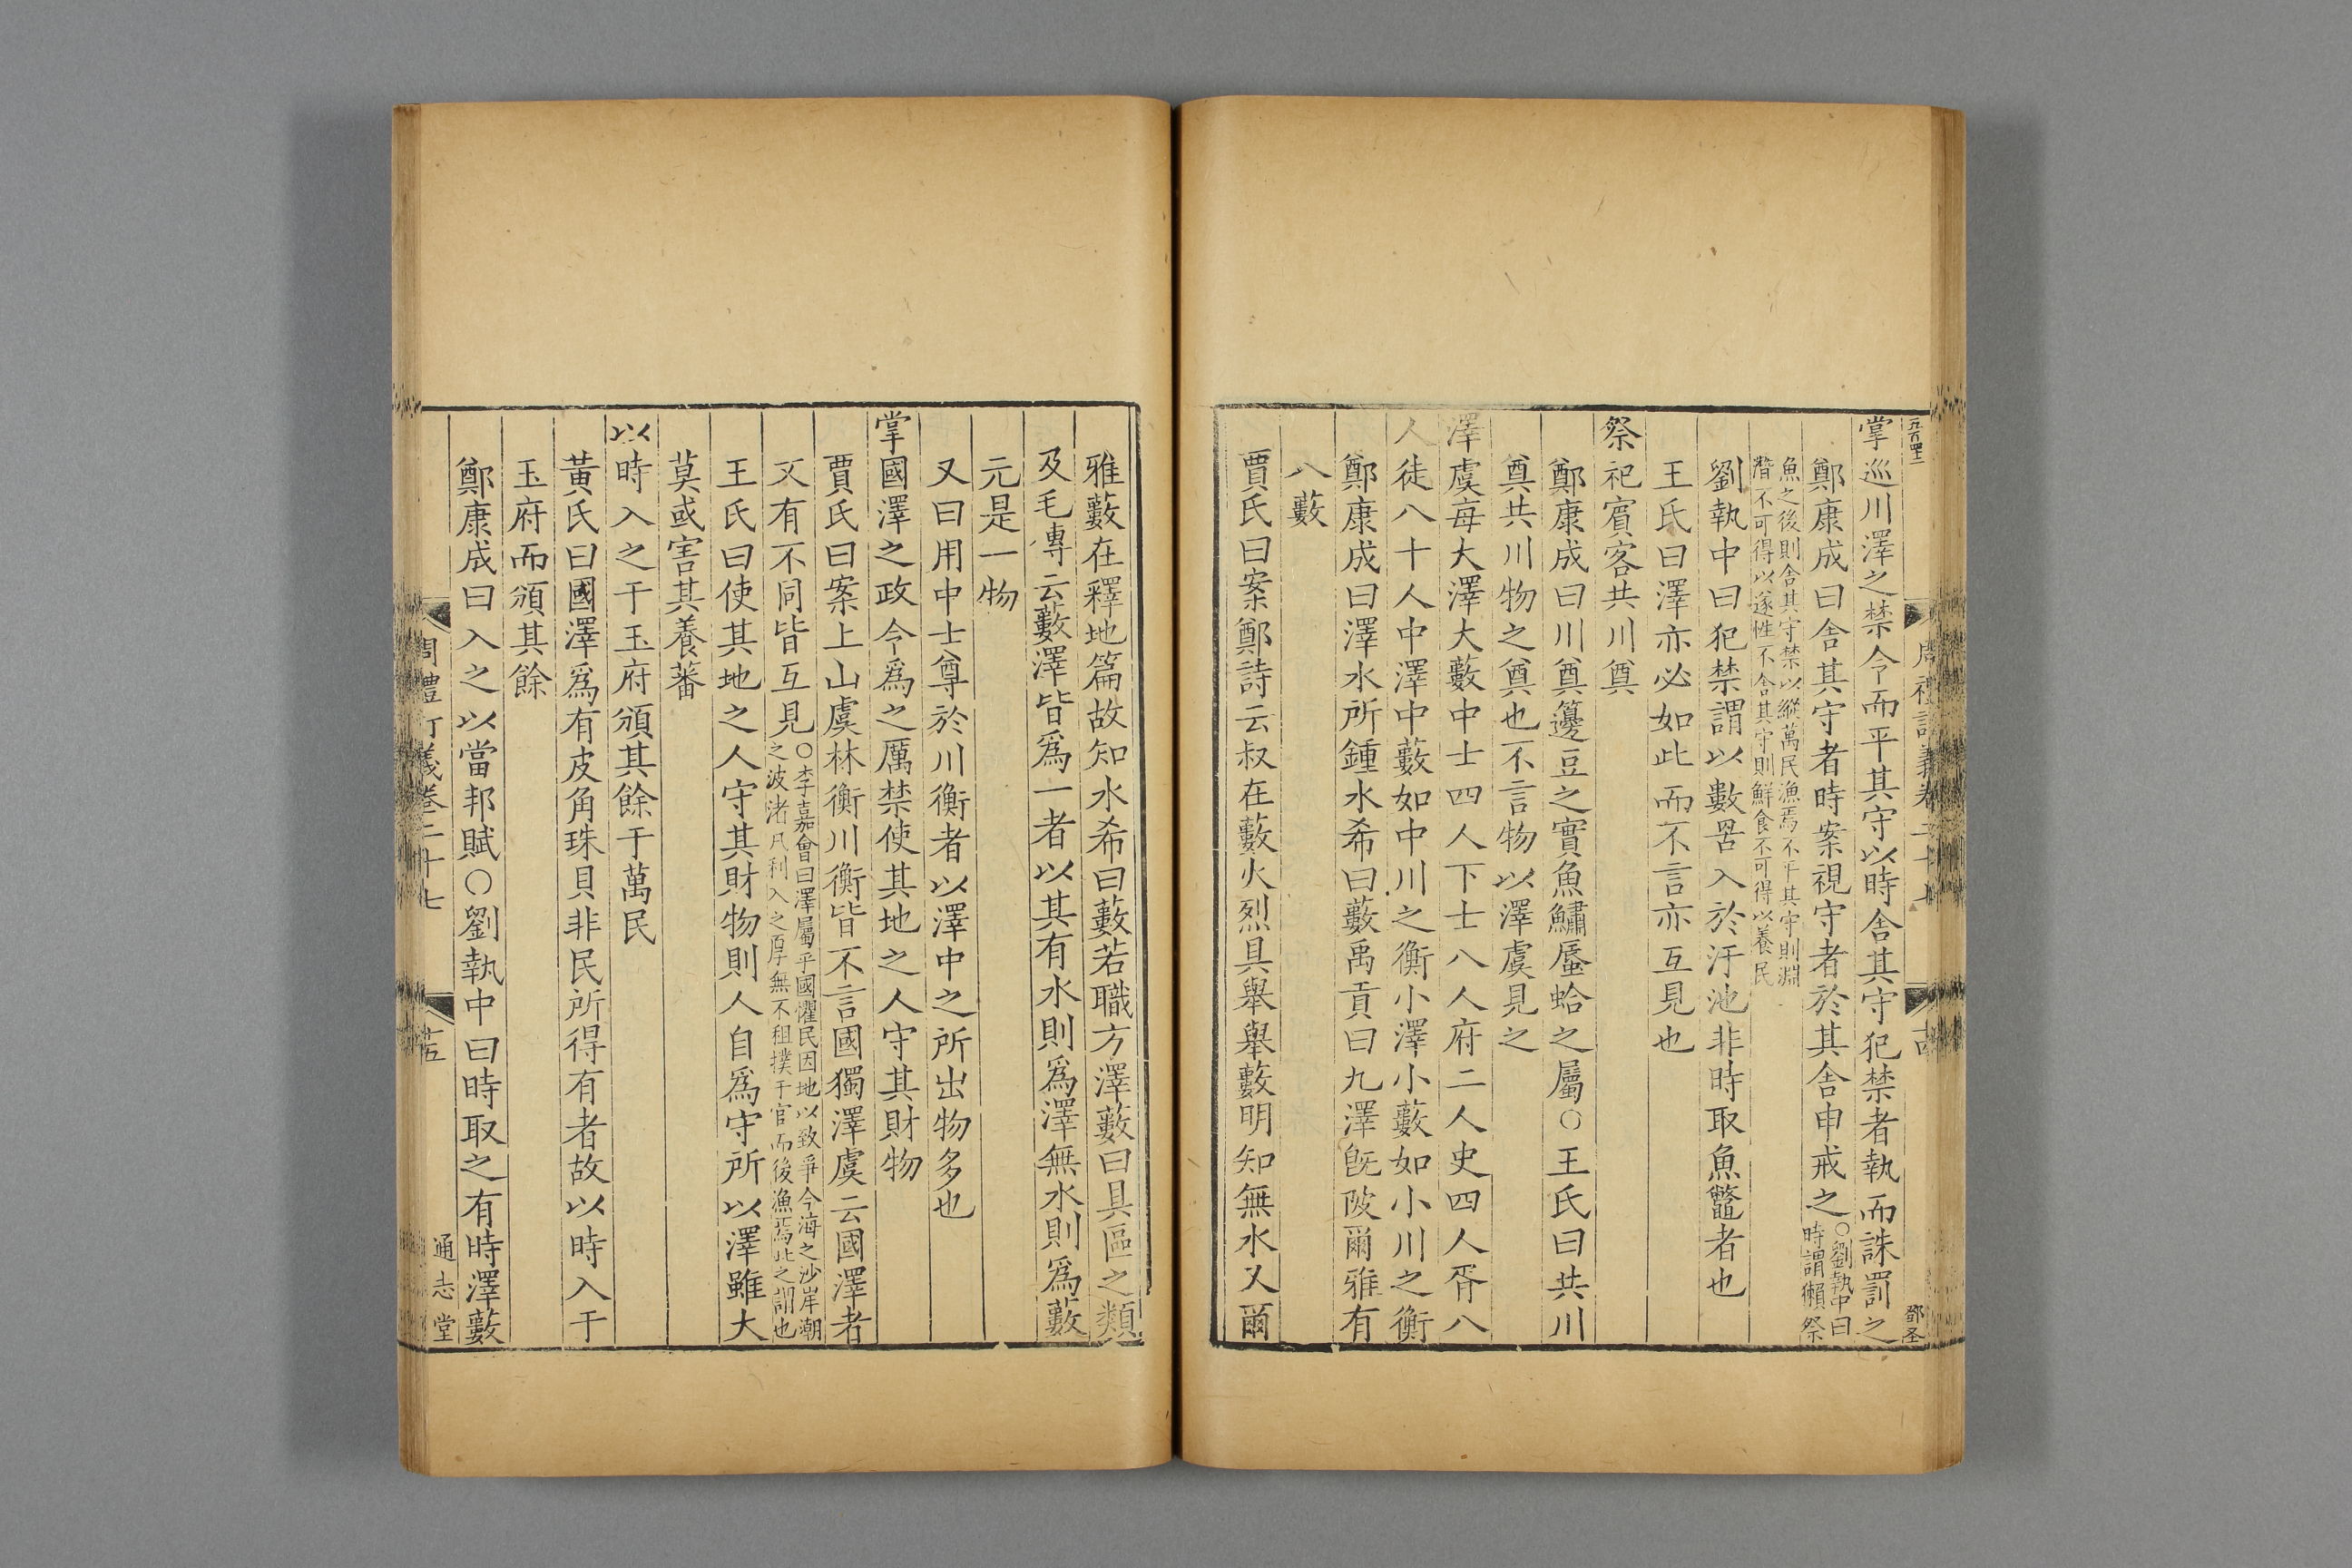 周禮訂義卷二十七
鄧圣
掌巡川澤之禁令而平其守以時舍其守犯禁者執而誅罰之
鄭康成曰舍其守者時案視守者於其舍申戒之○劉執中曰時謂獺祭
魚之後則舍其守禁以縱萬民漁焉不平其守則淵
潛不可得以遂性不舍其守則鮮食不可得以養民
劉執中曰犯禁謂以數罟入於汙池非時取魚鼈者也
王氏曰澤亦必如此而不言亦互見也
祭祀賓客共川奠
鄭康成曰川奠籩豆之實魚鱐蜃蛤之屬○王氏曰共川
奠共川物之奠也不言物以澤虞見之
澤虞每大澤大藪中士四人下士八人府二人史四人胥八
人徒八十人中澤中藪如中川之衡小澤小藪如小川之衡
鄭康成曰澤水所鍾水希曰藪禹貢曰九澤旣陂爾雅有
八藪
賈氏曰案鄭詩云叔在藪火烈具舉舉藪明知無水又爾
雅藪在釋地篇故知水希曰藪若職方澤藪曰具區之類
及毛傳云藪澤皆爲一者以其有水則爲澤無水則爲藪
元是一物
又曰用中士尊於川衡者以澤中之所出物多也
掌國澤之政令爲之厲禁使其地之人守其財物
賈氏曰案上山虞林衡川衡皆不言國獨澤虞云國澤者
又有不同皆互見○李嘉會曰澤屬乎國懼民因地以致爭今海之沙岸潮
之波渚凡利入之厚無不租撲于官而後漁焉此之謂也
王氏曰使其地之人守其財物則人自爲守所以澤雖大
莫或害其養蕃
以時入之于玉府頒其餘于萬民
黃氏曰國澤爲有皮角珠貝非民所得有者故以時入于
玉府而頒其餘
鄭康成曰入之以當邦賦○劉執中曰時取之有時澤藪
周禮訂義卷二十七
通志堂